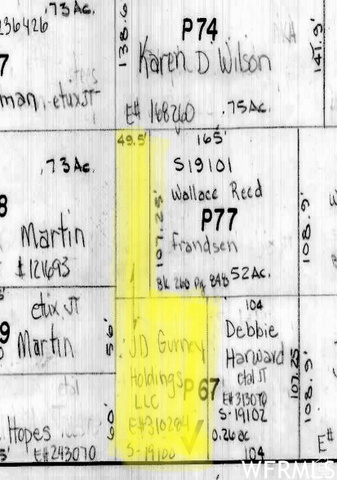 .73 Ac.
236426
138.6
P74
Karen D Wilson
141.9'
7
man etux JT
E# 168260
.75 Ac.
49.5'
165'
.73 Ac.
S19101
Wallace Reed
107.25'
P77
8
Frandsen
108.9'
Martin
#121693
Blk 260 Pg 848
.52 Ac.
etux JT
104
9
Martin
56'
JD Gurney
Debbie
Harward
Holdings
etal JT
107.25
108.9'
LLC
P67
E#313070
E#310284
S-19102
Hopes
60'
0.26 ac
E#243070
S-19100
104
E#
WFRMLS